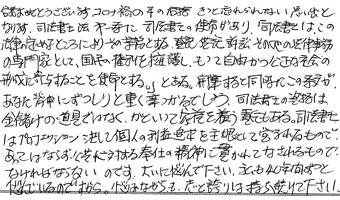 合格おめでとうございます。コロナ禍の中の合格 きっと忘れられない思い出と
なります。司法書士法 第一条に 司法書士の使命があり、司法書士は、この
法律の定めるところによりその業務とする登記、供託、訴訟その他の法律事務
の専門家として、国民の権利を擁護し、もって自由かつ公正な社会の
形成に寄与することを使命とする。」とある。開業すると同時にこの条が、
あなた 背中にずっしりと重く 夢つかるでしょう。司法書士の資格は
金儲けの道具ではなく、かといって 名誉を 覆う 衣でもある。司法書士
はプロフェッション 決して個人の利益追求を主眼として営まれるもので
あってはならず 公共に対する奉仕の精神に貫かれてなされるもので
なければならない のです。大いに悩んで下さい。私も 何年向ずっと
悩んでいるのですから。悩みながらも、だと誇りは持ち続けて下さい。